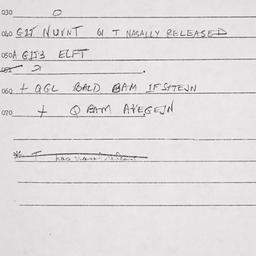 030 O
040 GIJ NUYNT W T NASALLY RELEASED
050A GIJ3 ELFT
052 2 .
060 + QGL BALD BAM IFSHTEJN
070 + Q BAM AVEGEJN